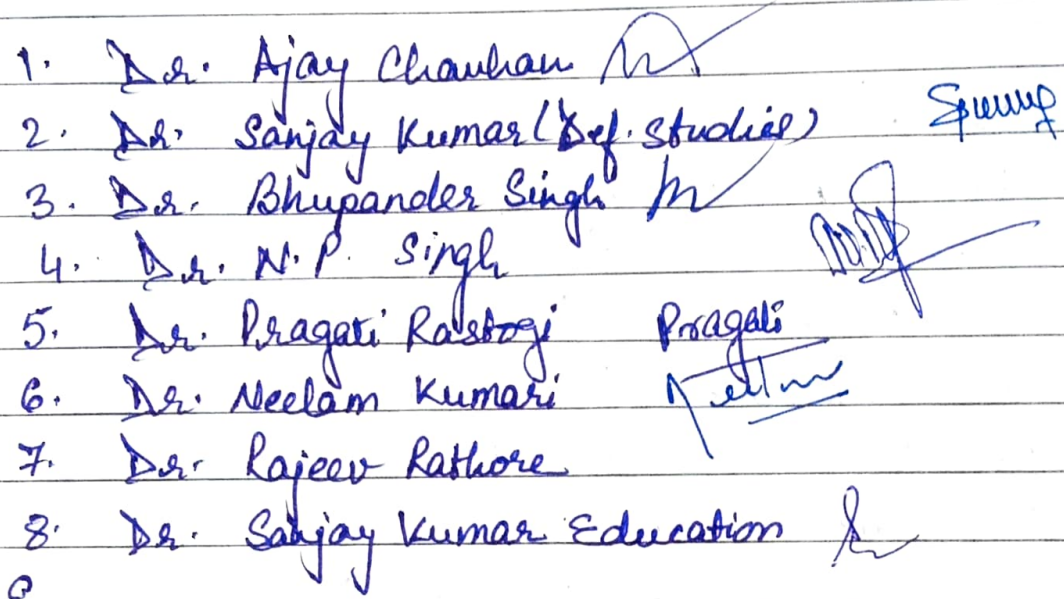 1. Dr. Ajay Chauhan
2. Dr. Sanjay Kumar (Def. Studies)
3. Dr. Bhupander Singh
4. Dr. N.P. Singh
5. Dr. Pragati Rastogi Pragati
6. Dr. Neelam Kumari
7. Dr. Rajeev Rathore
8. Dr. Sanjay Kumar Education